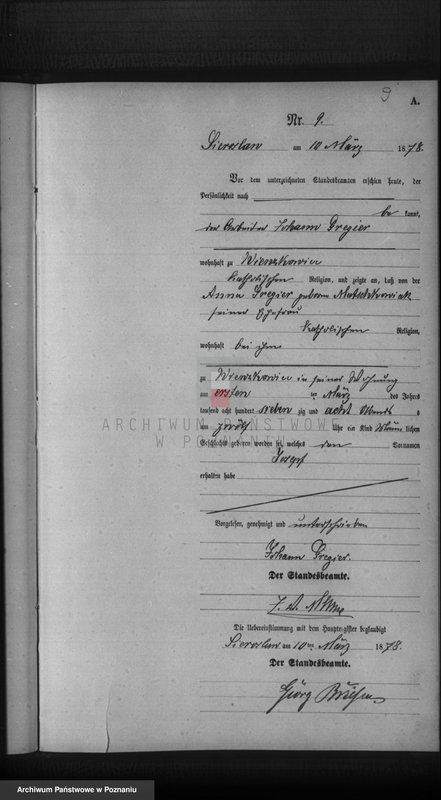 9
A.
Nr. 9.
am 10 März 1878.
Vor dem unterzeichneten Standesbeamten erschien heute, der
Persönlichkeit nach
be kannt,
der Arbeiter Johann Gregier
wohnhaft zu
katholischen Religion, und zeigte an, daß von der
Anna Gregier geborne
seiner Ehefrau
katholischen Religion,
wohnhaft bei ihm
zu in seiner Wohnung
am ersten März des Jahres
tausend acht hundert sieben zig und acht Abends
um zwölf Uhr ein Kind männ lichen
Geschlechts geboren worden sei, welches den Vornamen
Josef
erhalten habe
Vorgelesen, genehmigt und unterschrieben
Johann Gregier.
Der Standesbeamte.
Die Uebereinstimmung mit dem Hauptregister beglaubigt
am 10ten März 1878.
Der Standesbeamte.
Georg
ARCHIWUM PAŃSTWOWE
W POZNANIU
Archiwum Państwowe w Poznaniu